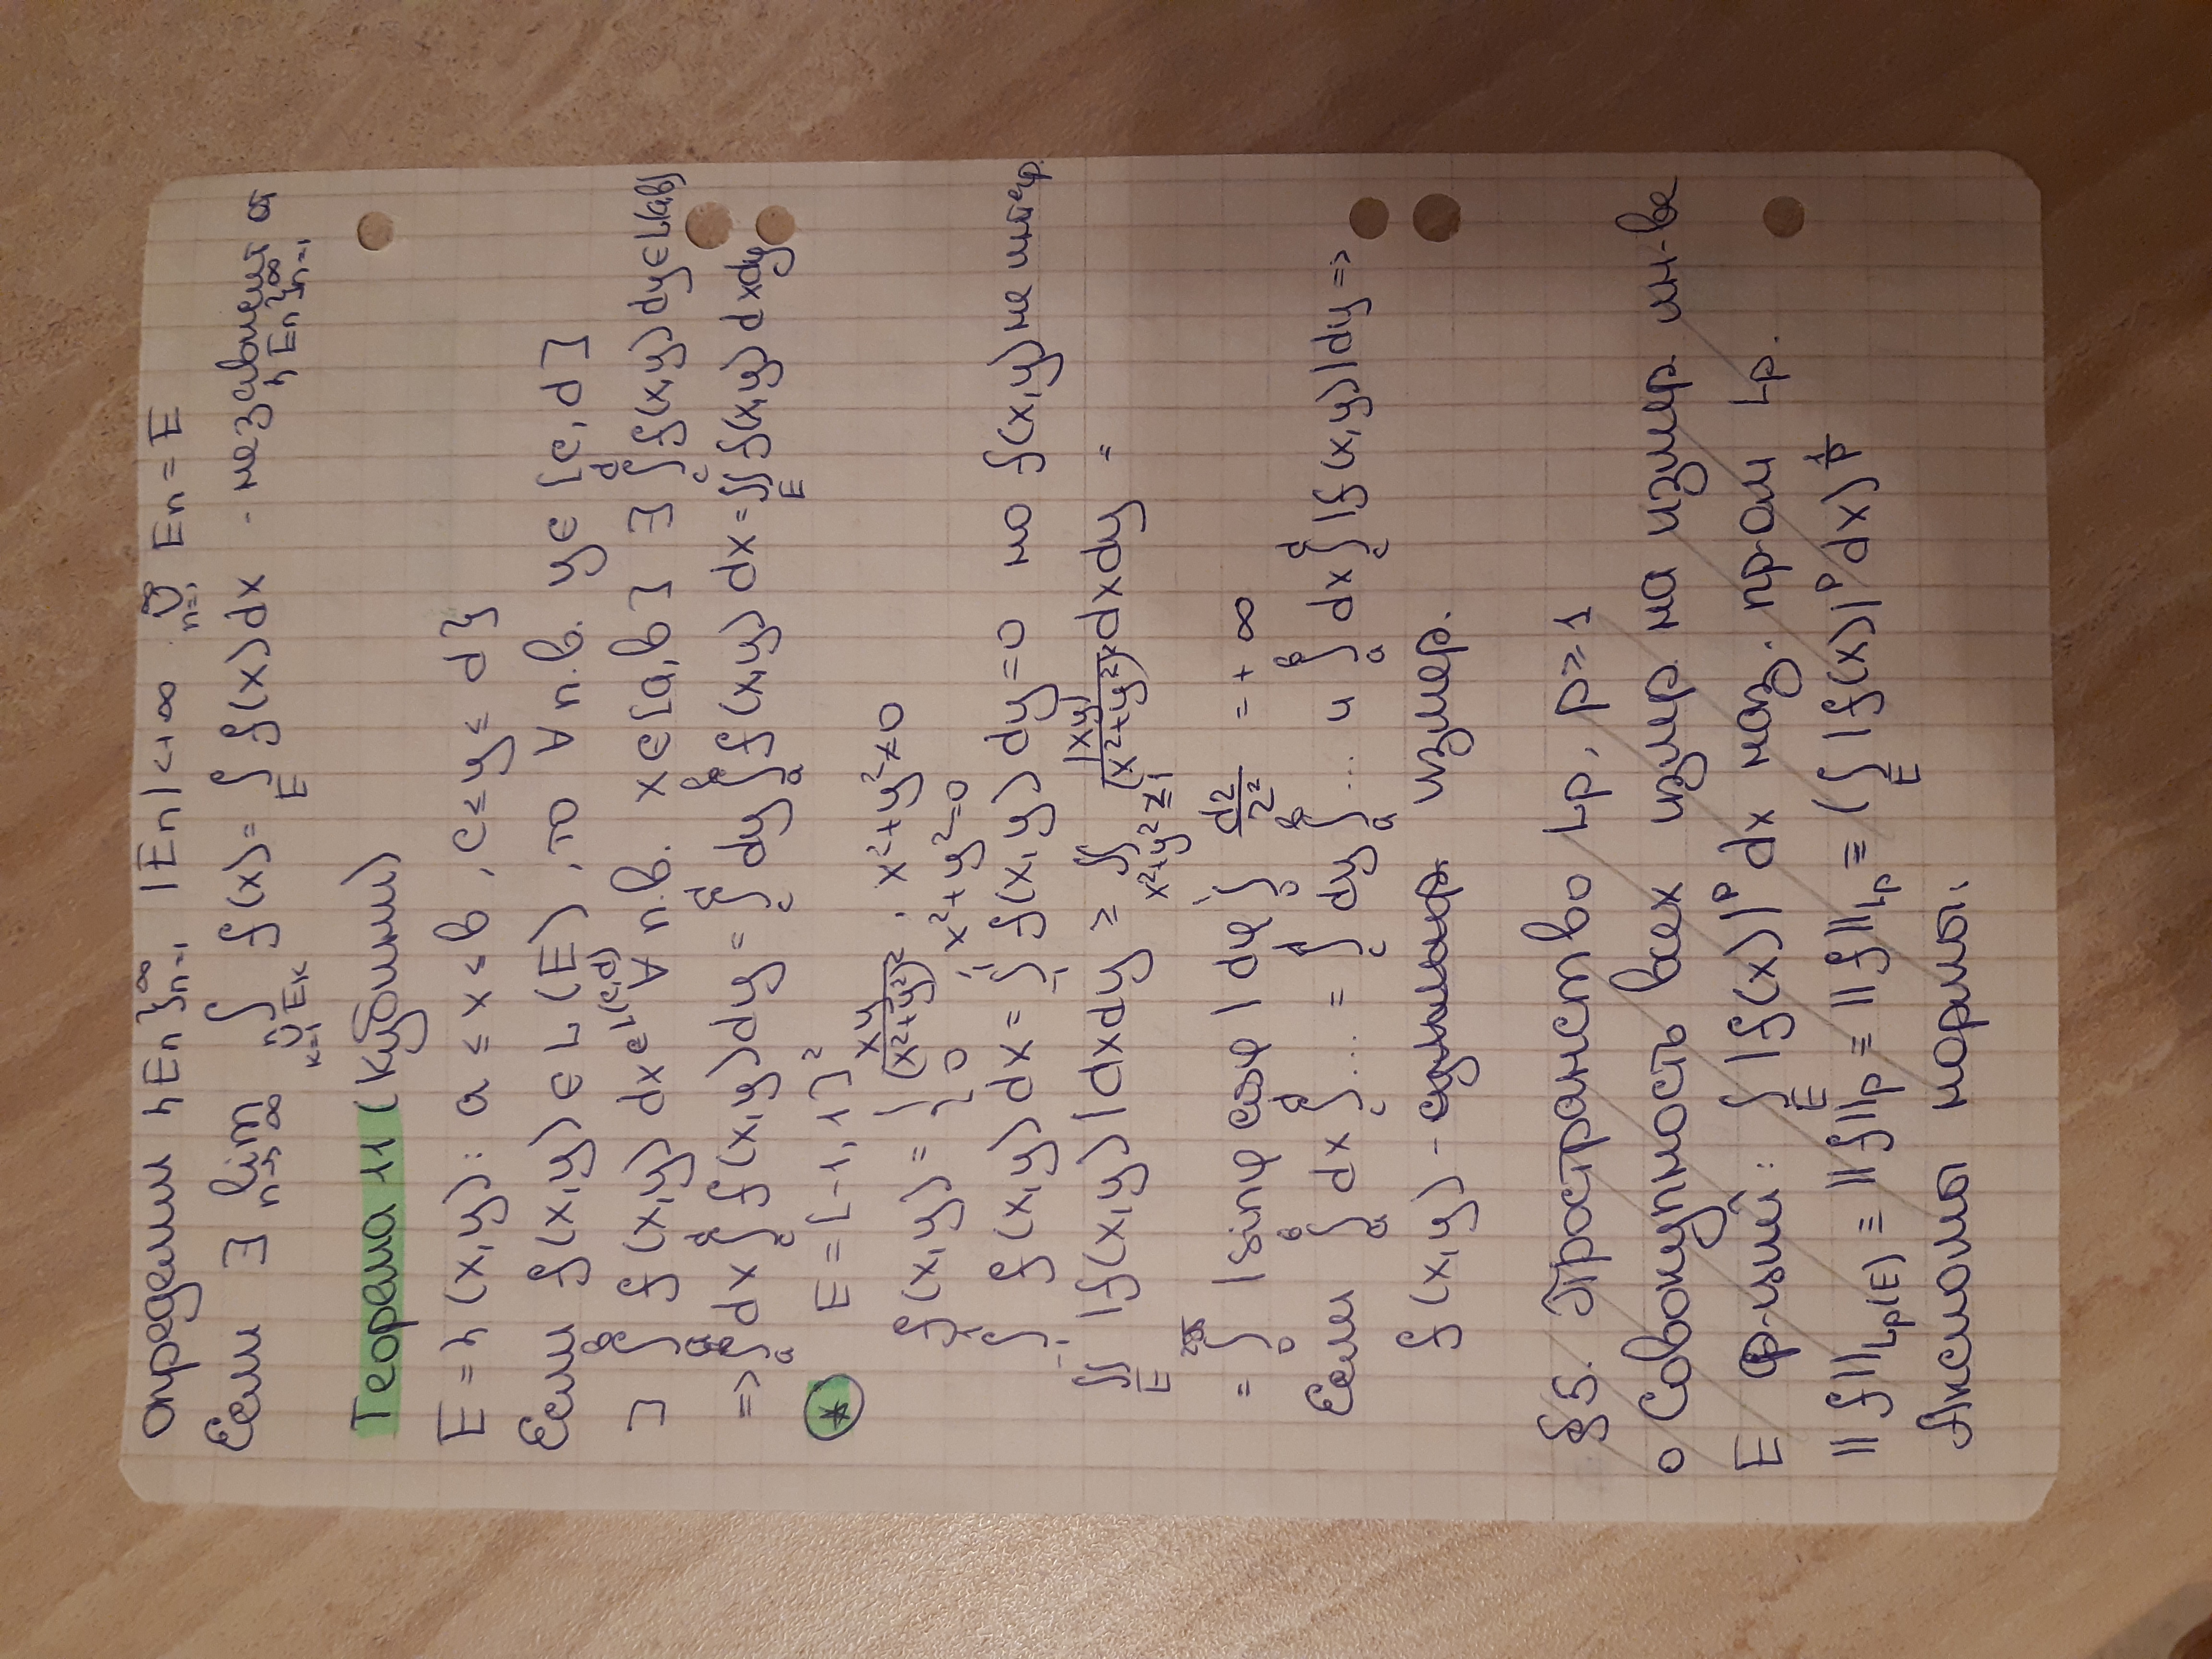 определим {En}ₙ₌₁^∞ |En|<+∞ ∪ₙ₌₁^∞ En = E
Если ∃ lim_{n→∞} ∫_{∪ₖ₌₁ⁿ Eₖ} f(x) = ∫_E f(x)dx - независим от {En}ₙ₌₁^∞
Теорема 11 (Кубини)
E = {(x,y): a ≤ x ≤ b, c ≤ y ≤ d}
Если f(x,y) ∈ L(E), то ∀ п.в. y ∈ [c,d]
∃ ∫_a^b f(x,y) dx ∈ L(c,d) ∀ п.в. x ∈ [a,b] ∃ ∫_c^d f(x,y) dy ∈ L(a,b)
=> ∫_a^b dx ∫_c^d f(x,y) dy = ∫_c^d dy ∫_a^b f(x,y) dx = ∬_E f(x,y) dxdy
* E = [-1,1]²
f(x,y) = { xy/(x²+y²)², x²+y²≠0
0 x²+y²=0
∫_{-1}^1 f(x,y) dx = ∫_{-1}^1 f(x,y) dy = 0 но f(x,y) не интегр.
∬_E |f(x,y)| dxdy ≥ ∬_{x²+y²≤1} |xy|/(x²+y²)² dxdy =
= ∫_0^{2π} |sinφ cosφ| dφ ∫_0^1 dr/r = +∞
Если ∫_a^b dx ∫_c^d ... = ∫_c^d dy ∫_a^b ... и ∫_a^b dx ∫_c^d |f(x,y)| dy =>
f(x,y) - измер.
§5. Пространство Lp, p ≥ 1
o Совокупность всех измер. на измер мн-ве
E ф-ций: ∫_E |f(x)|^p dx наз. пр-ом Lp.
||f||_{Lp(E)} ≡ ||f||_p ≡ ||f||_{Lp} ≡ (∫_E |f(x)|^p dx)^{1/p}
Аксиомы нормы: